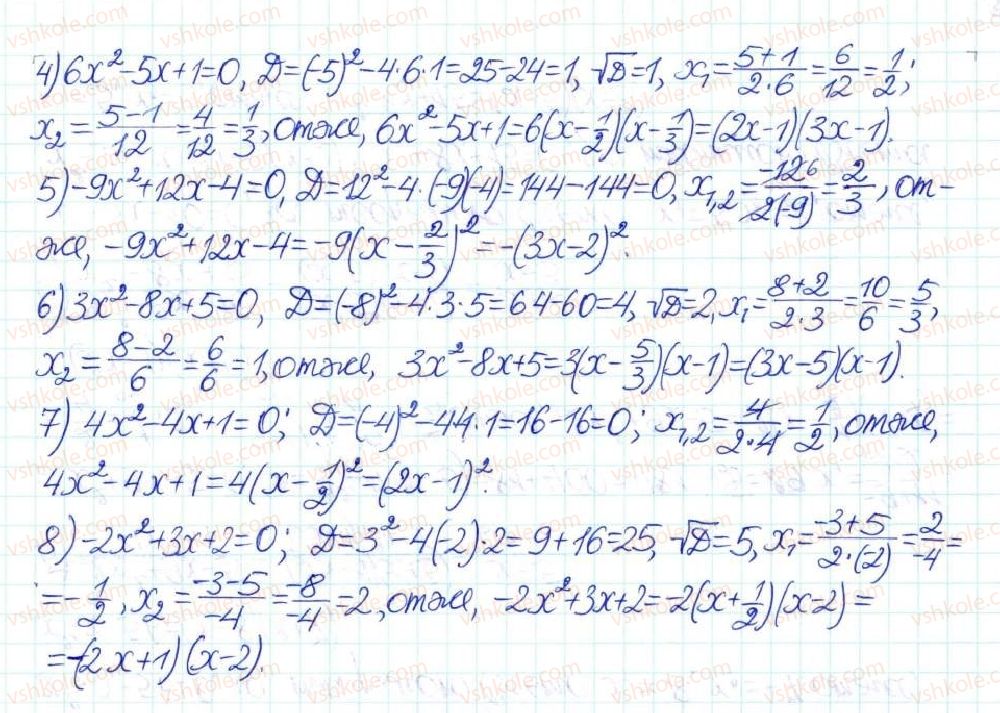 4) 6x²-5x+1=0, D=(-5)²-4·6·1=25-24=1, √D=1, x₁=(5+1)/(2·6)=6/12=1/2;
x₂=(5-1)/12=4/12=1/3, отже, 6x²-5x+1=6(x-1/2)(x-1/3)=(2x-1)(3x-1).
5) -9x²+12x-4=0, D=12²-4·(-9)(-4)=144-144=0, x₁,₂=-12/(2(-9))=2/3, от-
же, -9x²+12x-4=-9(x-2/3)²=-(3x-2)².
6) 3x²-8x+5=0, D=(-8)²-4·3·5=64-60=4, √D=2, x₁=(8+2)/(2·3)=10/6=5/3,
x₂=(8-2)/6=6/6=1, отже, 3x²-8x+5=3(x-5/3)(x-1)=(3x-5)(x-1).
7) 4x²-4x+1=0; D=(-4)²-4·4·1=16-16=0; x₁,₂=4/(2·4)=1/2, отже,
4x²-4x+1=4(x-1/2)²=(2x-1)².
8) -2x²+3x+2=0; D=3²-4(-2)·2=9+16=25, √D=5, x₁=(-3+5)/(2·(-2))=2/-4=
=-1/2, x₂=(-3-5)/-4=-8/-4=2, отже, -2x²+3x+2=-2(x+1/2)(x-2)=
=-(2x+1)(x-2).
vshkole.com